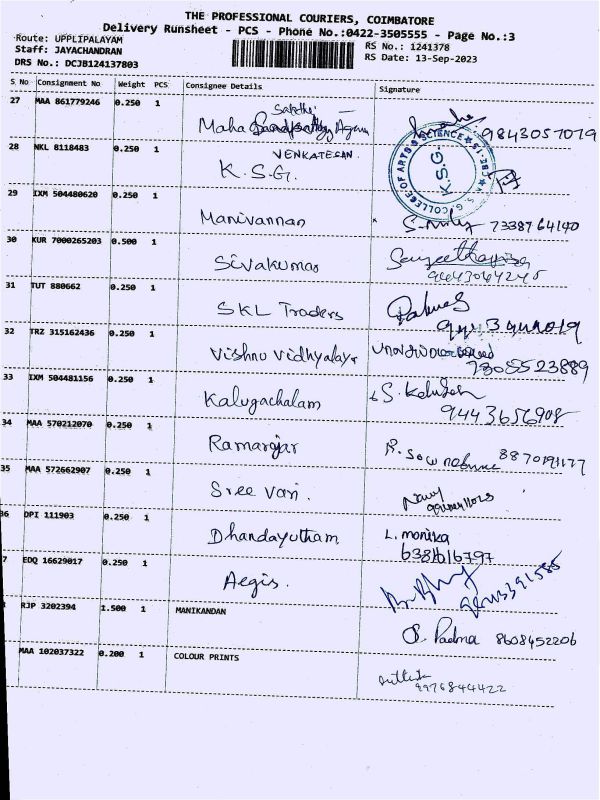 THE PROFESSIONAL COURIERS, COIMBATORE
Delivery Runsheet - PCS - Phone No.:0422-3505555 - Page No.:3
Route: UPPLIPALAYAM
RS No.: 1241378
Staff: JAYACHANDRAN
RS Date: 13-Sep-2023
DRS No.: DCJB124137803
S No Consignment No Weight PCS Consignee Details Signature
27 MAA 861779246 0.250 1
Sakthi
Maha 9843057019
28 NKL 8118483 0.250 1 VENKATESAN.
K.S.G.
K.S.G. COLLEGE OF ARTS & SCIENCE
K.S.G.
29 IXM 504480620 0.250 1
Manivannan 7338764140
30 KUR 7000265203 0.500 1
Sivakumar Sangeetha
9443064245
31 TUT 880662 0.250 1
SKL Traders
32 TRZ 315162436 0.250 1
Vishnu Vidhyalaya
7305523889
33 IXM 504481156 0.250 1
Kalugachalam S.
9443656908
34 MAA 570212070 0.250 1
Ramarajar R.
35 MAA 572662907 0.250 1
Sree Vari.
36 DPI 111903 0.250 1
Dhandayutham L. monika
6381616797
7 EDQ 16629017 0.250 1
Aegis.
RJP 3202394 1.500 1 MANIKANDAN
S. Padma 8608452206
MAA 102037322 0.200 1 COLOUR PRINTS
9976844422